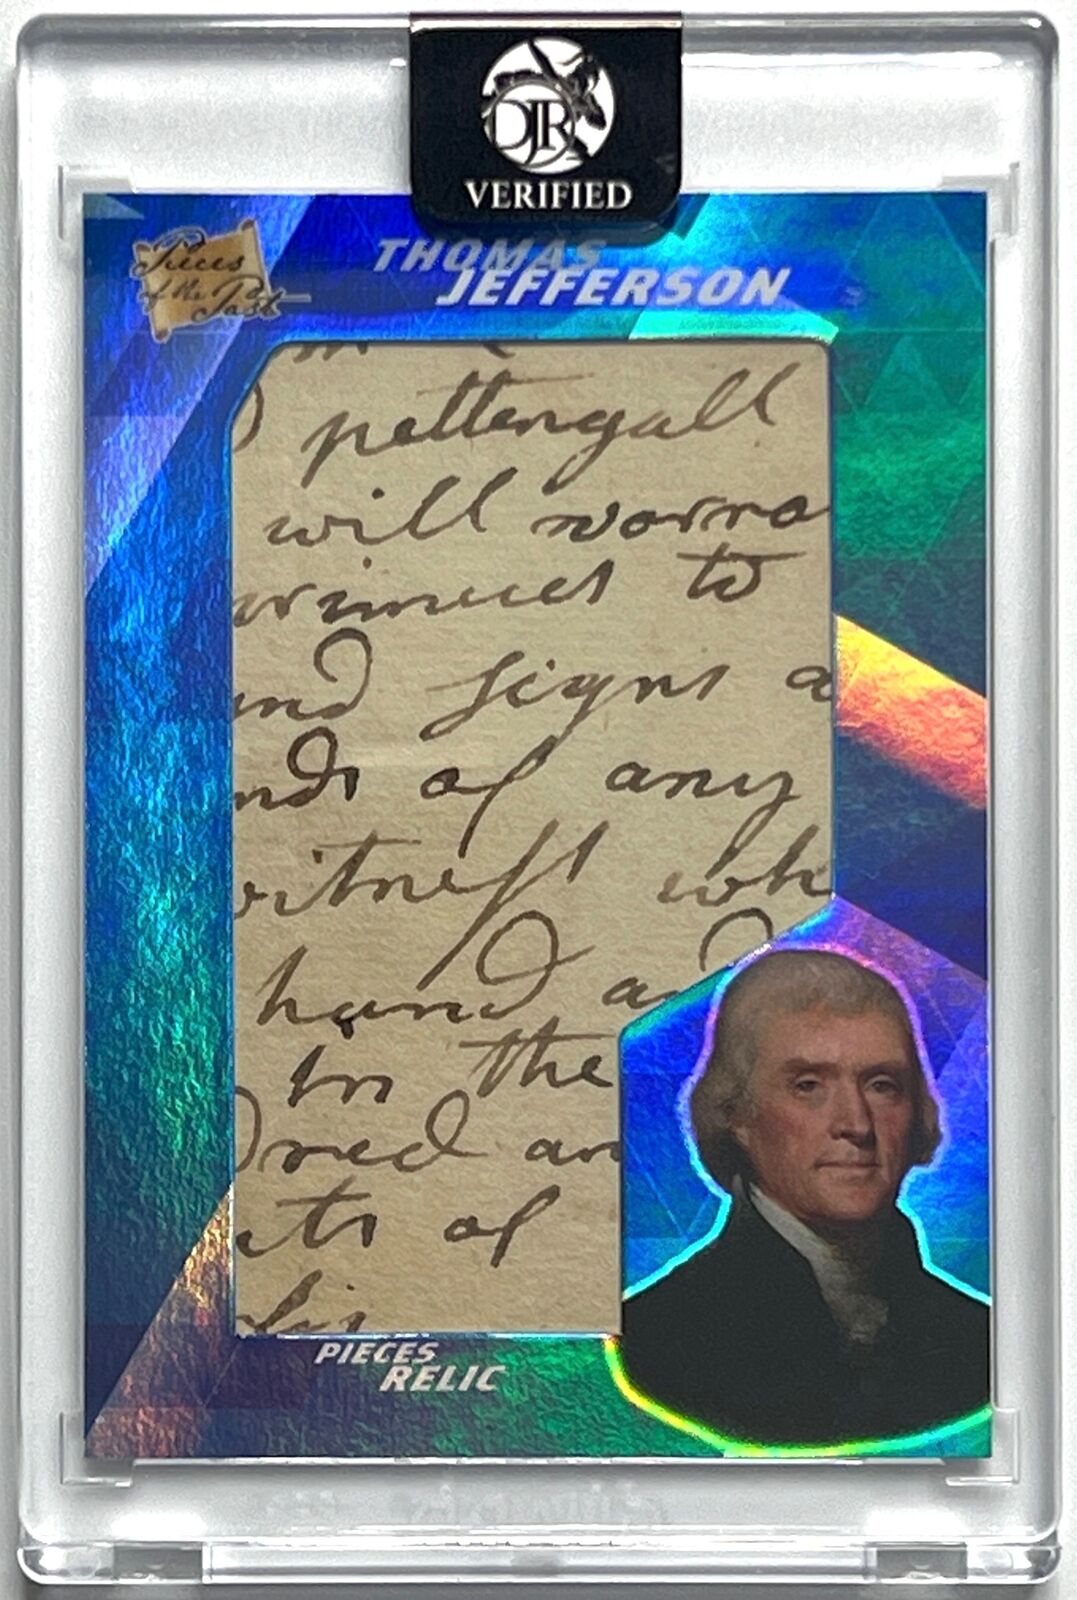 DJR
VERIFIED
Pieces
of the Past
THOMAS
JEFFERSON
pettengall
will worra
to
and signs a
nds of any
witness wh
hand a
in the
dred an
ts of
PIECES
RELIC